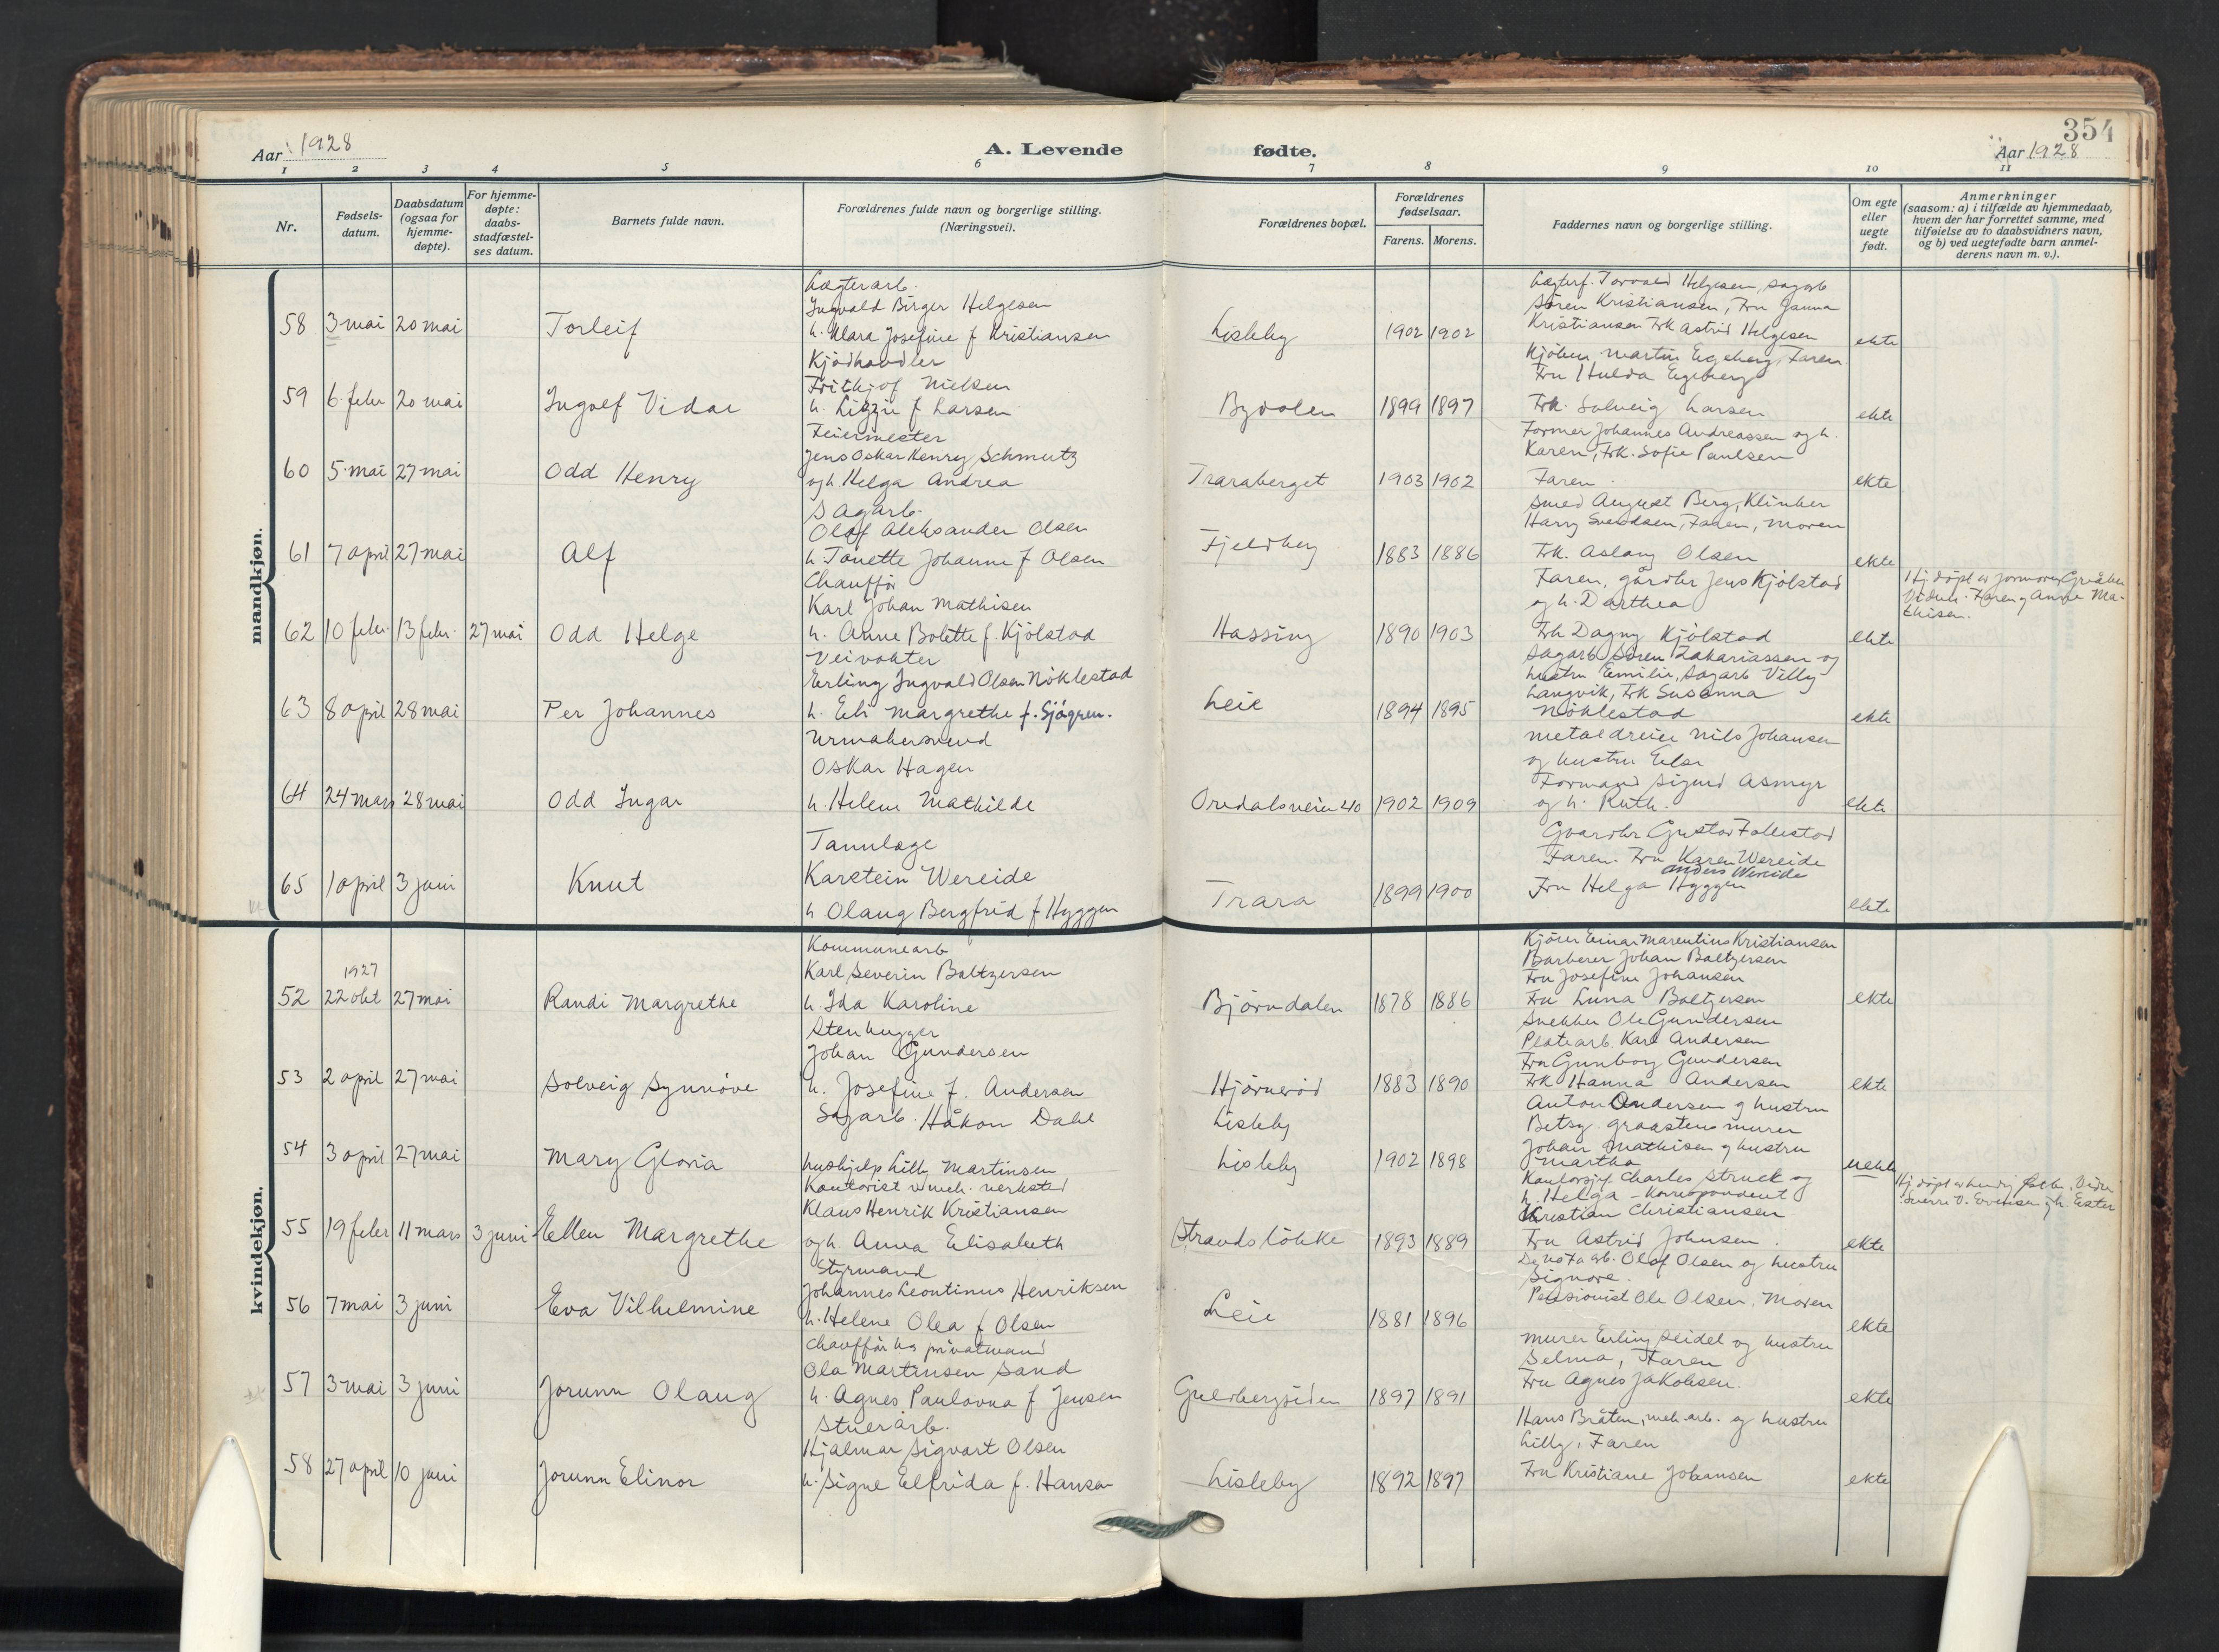 354
Aar 1928
A. Levende fødte.
Aar 1928
1 2 3 4 5 6 7 8 9 10 11
Nr.
Fødsels-
datum.
Daabsdatum
(ogsaa for
hjemme-
døpte).
For hjemme-
døpte:
daabs-
stadfæstel-
ses datum.
Barnets fulde navn.
Forældrenes fulde navn og borgerlige stilling.
(Næringsvei).
Forældrenes bopæl.
Forældrenes
fødselsaar.
Farens. Morens.
Faddernes navn og borgerlige stilling.
Om egte
eller
uegte
født.
Anmerkninger
(saasom: a) i tilfælde av hjemmedaab,
hvem der har forrettet samme, med
tilføielse av to daabsvidners navn,
og b) ved uegtefødte barn anmel-
derens navn m. v.).
mandkjøn.
58 3 mai 20 mai Torleif
Lægterarb.
Ingvald Birger Helgesen
h. Klara Josefine f Kristiansen
Lisleby 1902 1902
Torvald Helgesen, sagarb
Sören Kristiansen, Fru Janna
Kristiansen Frk Astrid Helgesen
ekte
59 6 febr 20 mai Ingolf Vidar
Kjödhandler
Frithjof Nielsen
h. Lizzie f Larsen
Bydalen 1899 1897
Kjöbm. Martin Egeberg, Faren
Fru Hulda Egeberg
Frk. Solveig Larsen
ekte
60 5 mai 27 mai Odd Henry
Feiermester
Jens Oskar Henry Schmutz
og h. Helga Andrea
Traraberget 1903 1902
Former Johannes Andreassen og h.
Karen, Frk. Sofie Paulsen
Faren
ekte
61 7 april 27 mai Alf
Sagarb.
Olaf Aleksander Olsen
h. Tonette Johanne f Olsen
Fjeldberg 1883 1886
Smed August Berg, Klinker
Harry Svendsen, Faren, Moren
Frk. Aslaug Olsen
ekte
62 10 febr. 13 febr. 27 mai Odd Helge
Chauffør
Karl Johan Mathisen
h. Anne Bolette f. Kjölstad
Hassing 1890 1903
Faren, gårdbr Jens Kjölstad
og h. Darthea
Frk Dagny Kjölstad
ekte
Hj. döpt av jormoren
Vidner. Faren og Anne Ma-
thisen.
63 8 april 28 mai Per Johannes
Veivokter
Erling Ingvald Olsen Nöklestad
h. Eli Margrethe f. Sjögren.
Leie 1894 1895
Sagarb. Sören Zakariassen og
hustru Emilie, Sagarb Villy
Langvik, Frk Susanna
Nöklestad
ekte
64 24 mars 28 mai Odd Ingar
Urmakersvend
Oskar Hagen
h. Helene Mathilde
Oredalsveien 40 1902 1909
Metaldreier Nils Johansen
og hustru Else
Formand Sigurd Asmyr
og h. Ruth.
ekte
65 1 april 3 juni Knut
Tannlæge
Karstein Wereide
h Olaug Bergfrid f Hyggen
Trara 1899 1900
Gvardbr Gustav Follestad
Faren. Fru Karen Wereide
Anders Wereide
Fru Helga Hyggen
ekte
kvindekjøn.
52 1927 22 okt 27 mai Randi Margrethe
Kommunearb
Karl Severin Baltzersen
h Ida Karoline
Björndalen 1878 1886
Kjörer Einar Marentius Kristiansen
Barberer Johan Baltzersen
Fru Josefine Johansen
Fru Luna Baltzersen
ekte
53 2 april 27 mai Solveig Synnöve
Stenhugger
Johan Gundersen
h. Josefine f. Andersen
Hjörneröd 1883 1890
Snekker Ole Gundersen
Platearb. Karl Andersen
Fru Gunborg Gundersen
Frk Hanna Andersen
ekte
54 3 april 27 mai Mary Gloria
Sagarb. Håkon Dahl
hushjelp Lilly Martinsen
Lisleby
Lisleby 1902 1898
Anton Andersen og hustru
Betsy. graastensmurer
Johan Mathisen og hustru
Martha
uekte
55 19 febr 11 mars 3 juni Ellen Margrethe
Kontorist v. mek. verksted
Klaus Henrik Kristiansen
og h. Anna Elisabeth
Strandslökke 1893 1889
Kontorsjef Charles Struck og
h. Helga - Korrespondent
Kristian Christiansen
Fru Astrid Johnsen.
ekte
Sverre O. Evensen og h. Ester
56 7 mai 3 juni Eva Vilhelmine
Styrmand
Johannes Leontinus Henriksen
h. Helene Olea f Olsen
Leie 1881 1896
arb. Olaf Olsen og hustru
Signora.
Pensionist Ole Olsen, Moren
ekte
57 3 mai 3 juni Jorunn Olaug
Chauffør hos privatmand
Ola Martinsen Sand
h. Agnes Paulovna f Jensen
Guldbergsiden 1897 1891
Murer Erling Seidel og hustru
Selma, Faren
Fru Agnes Jakobsen.
ekte
58 27 april 10 juni Jorunn Elinor
Stuerarb.
Hjalmar Sigvart Olsen
h. Signe Elfrida f. Hansen
Lisleby 1892 1897
Hans Bråten, mek. arb. og hustru
Lilly, Faren
Fru Kristiane Johansen
ekte